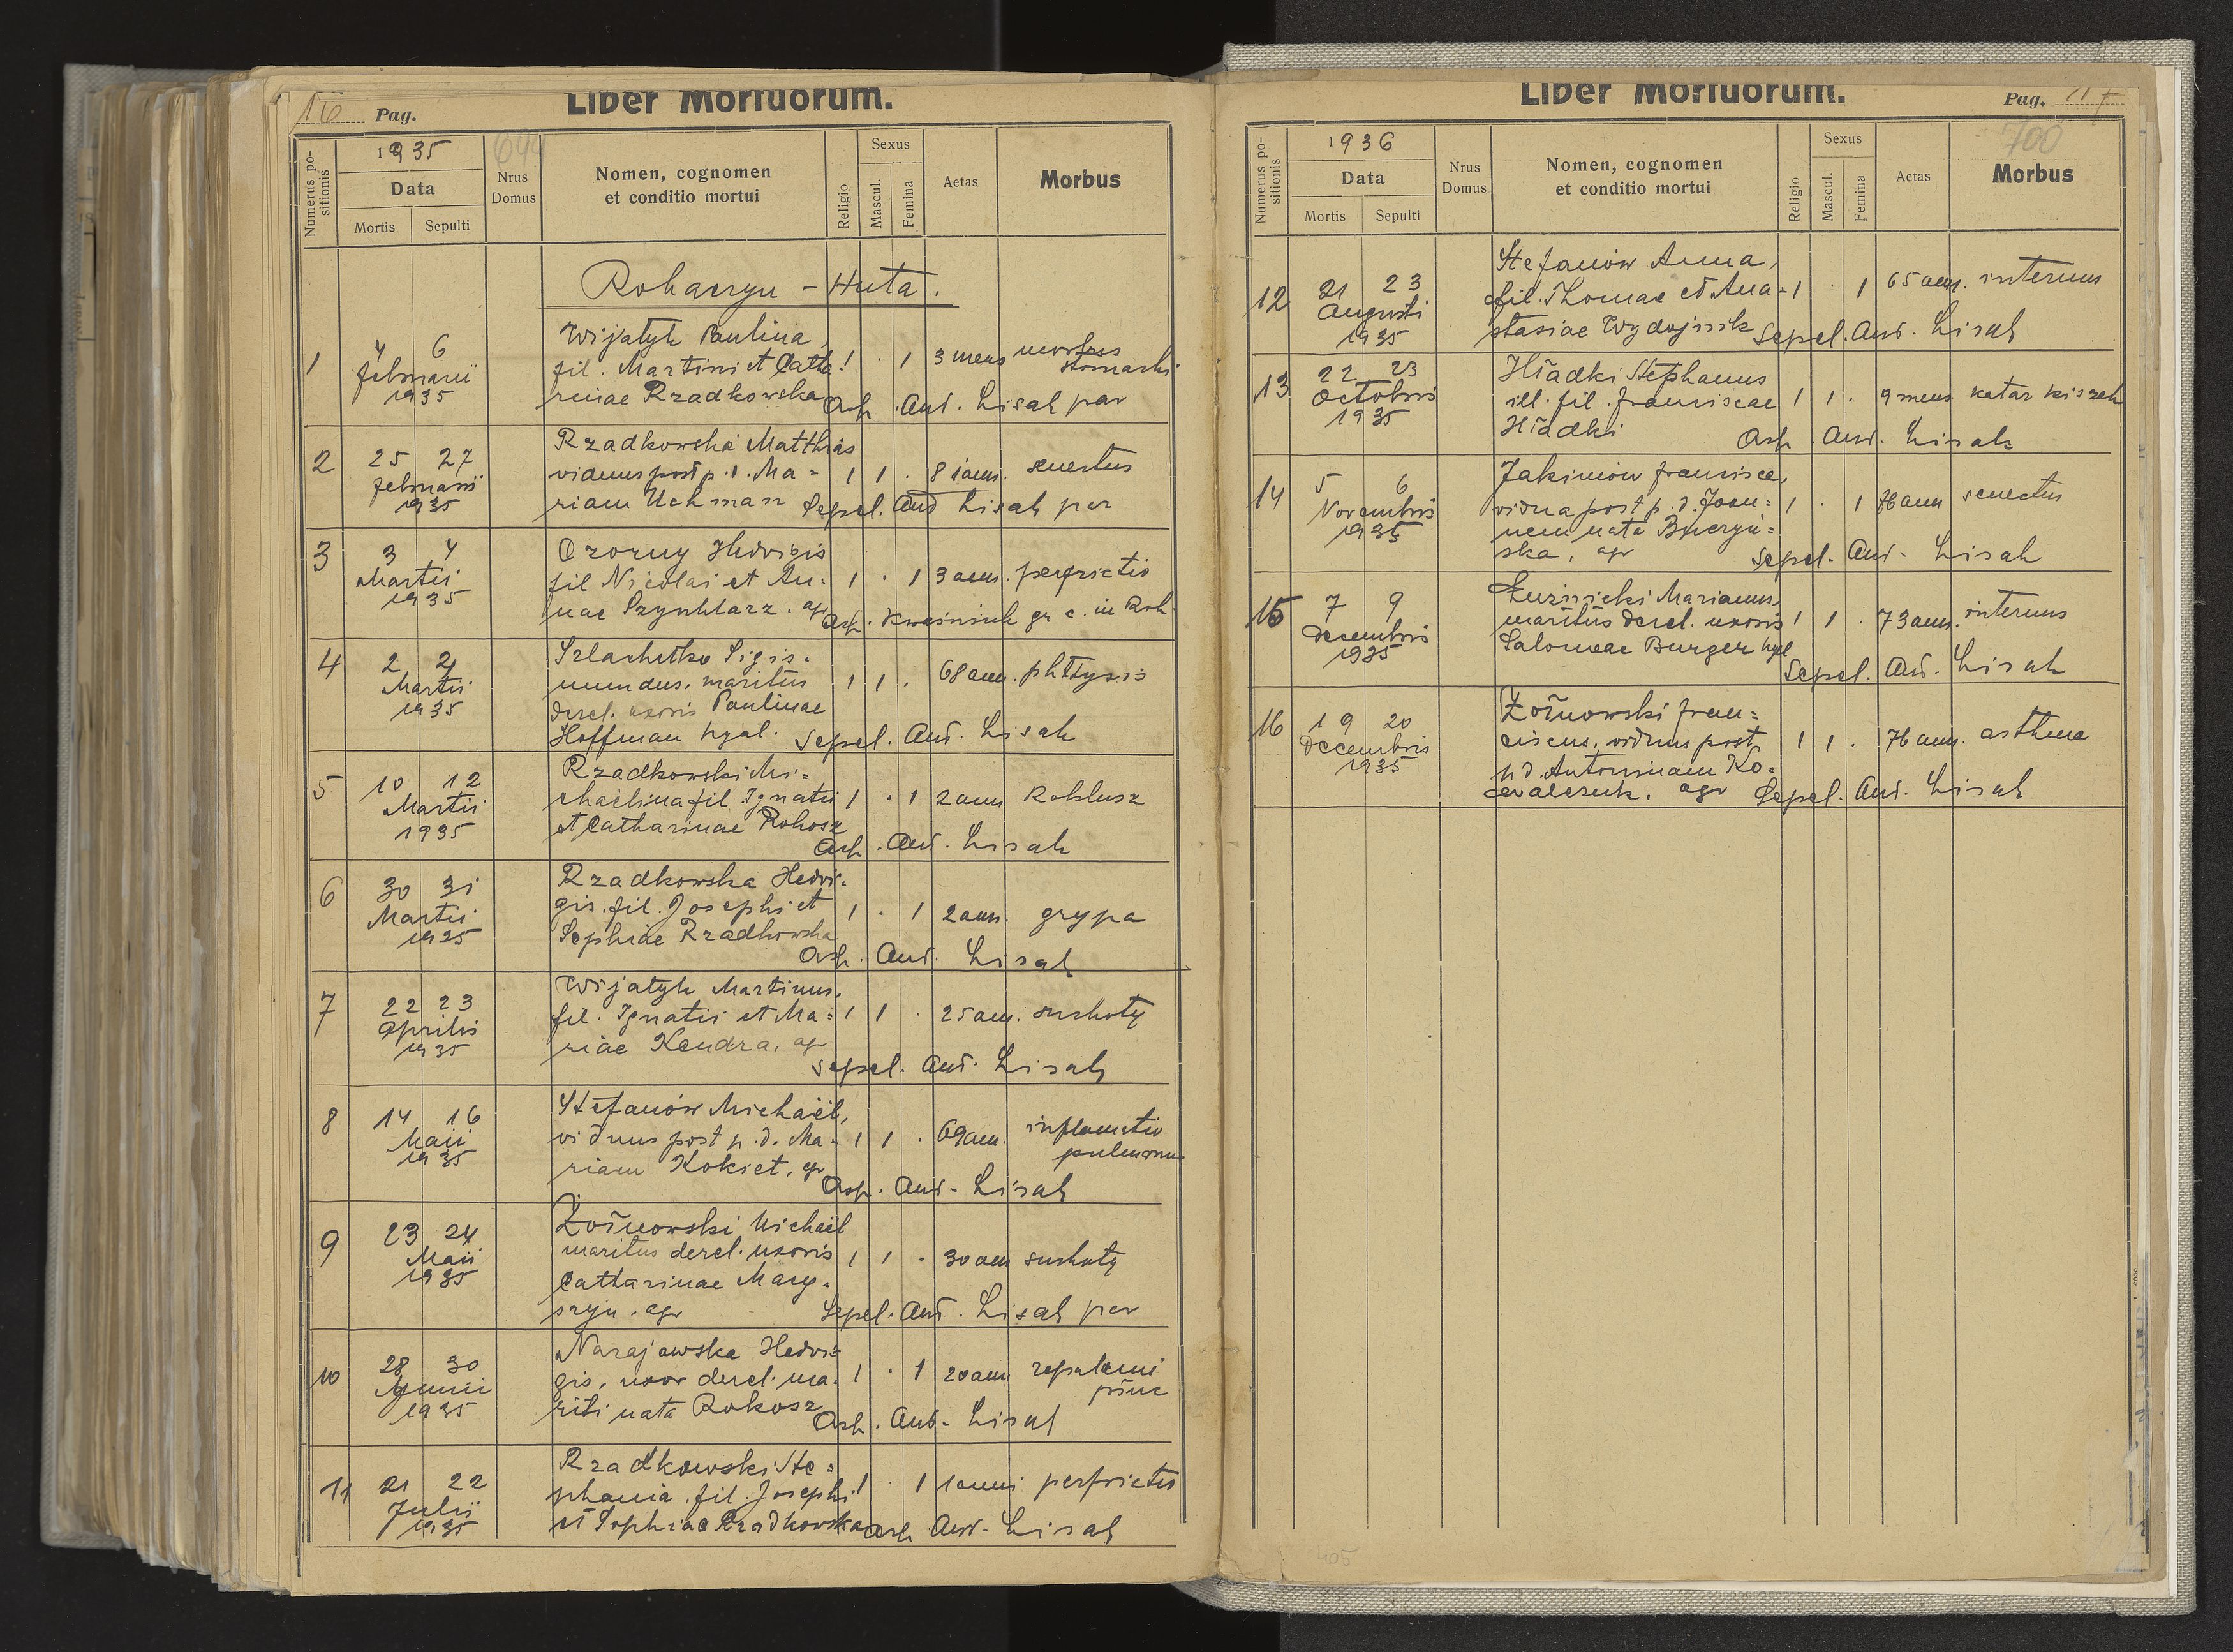 16 Pag. Liber Mortuorum.
Numerus positionis
1935
Data
Mortis Sepulti
Nrus Domus
Nomen, cognomen
et conditio mortui
Religio
Sexus
Mascul. Femina
Aetas
Morbus
Rohaczyn - Huta.
1 4 6 Wijatyk Paulina,
Februarii fil. Martini et Catha- 1 . 1 3 mens morbus stomachi
1935 rinae Rzadkowska Asp. Ant. Lisak par
2 25 27 Rzadkowski Matthias
Februarii viduus post p. d. Ma= 1 1 . 81 ann. senectus
1935 riam Uchman Sepel. Ant Lisak par
3 3 4 Czorny Hedvigis
Martii fil Nicolai et An= 1 . 1 3 ann. perfrictio
1935 nae Szynklarz. agr Asp. gr. c. in Roh.
4 2 4 Szlachetko Sigis=
Martii mundus, maritus 1 1 . 68 ann. phtysis
1935 derel. uxoris Paulinae
Hoffman hyal. Sepel. Ant. Lisak
5 10 12 Rzadkowski Mi=
Martii chaelina fil. Ignatii 1 . 1 2 ann koklusz
1935 et Catharinae Rokosz
Asp. Ant. Lisak
6 30 31 Rzadkowska Hedvi=
Martii gis, fil. Josephi et 1 . 1 2 ann. grypa
1935 Sophiae Rzadkowska
Asp. Ant. Lisak
7 22 23 Wijatyk Martinus,
Aprilis fil. Ignatii et Ma= 1 1 . 25 ann. suchoty
1935 riae Kendra. agr
Sepel. Ant. Lisak
8 14 16 Stefanów Michaël,
Maii viduus post p. d. Ma= 1 1 . 69 ann. inflamatio pulmonum
1935 riam Kokiet, agr
Asp. Ant. Lisak
9 23 24 Żołnowski Michaël
Maii maritus derel. uxoris 1 1 . 30 ann suchoty
1935 Catharinae Mary=
agr Sepel. Ant. Lisak par
10 28 30 Narajowska Hedvi=
Junii gis, uxor derel. ma= 1 . 1 20 ann zapalenie płuc
1935 riti nata Rokosz
Asp. Ant. Lisak
11 21 22 Rzadkowski Ste=
Julii phania, fil. Josephi 1 . 1 1 anni perfrictio
1935 et Sophiae Rzadkowska Asp Ant. Lisak
Liber Mortuorum. Pag. 117
700
Numerus positionis
1936
Data
Mortis Sepulti
Nrus Domus
Nomen, cognomen
et conditio mortui
Religio
Sexus
Mascul. Femina
Aetas
Morbus
12 21 23 Stefanów Anna,
Augusti fil. Thomae et Ana= 1 . 1 65 ann. internus
1935 stasiae Wydojnik Sepel. Ant. Lisak
13 22 23 Hładki Stephanus
Octobris ill. fil. Franciscae 1 1 . 9 mens katar kiszek
1935 Hładki Asp. Ant. Lisak
14 5 6 Jakimów Francisca,
Novembris vidua post p. d. Joan= 1 . 1 76 ann senectus
1935 nem nata
ska, agr Sepel. Ant. Lisak
15 7 9 Marianus,
Decembris maritus derel. uxoris 1 1 . 73 ann. internus
1935 Salomeae Burger hyal
Sepel. Ant. Lisak
16 19 20 Żołnowski Fran=
Decembris ciscus, viduus post 1 1 . 76 ann. asthma
1935 p. d. Antoninam Ko=
walczuk. agr Sepel. Ant. Lisak
405